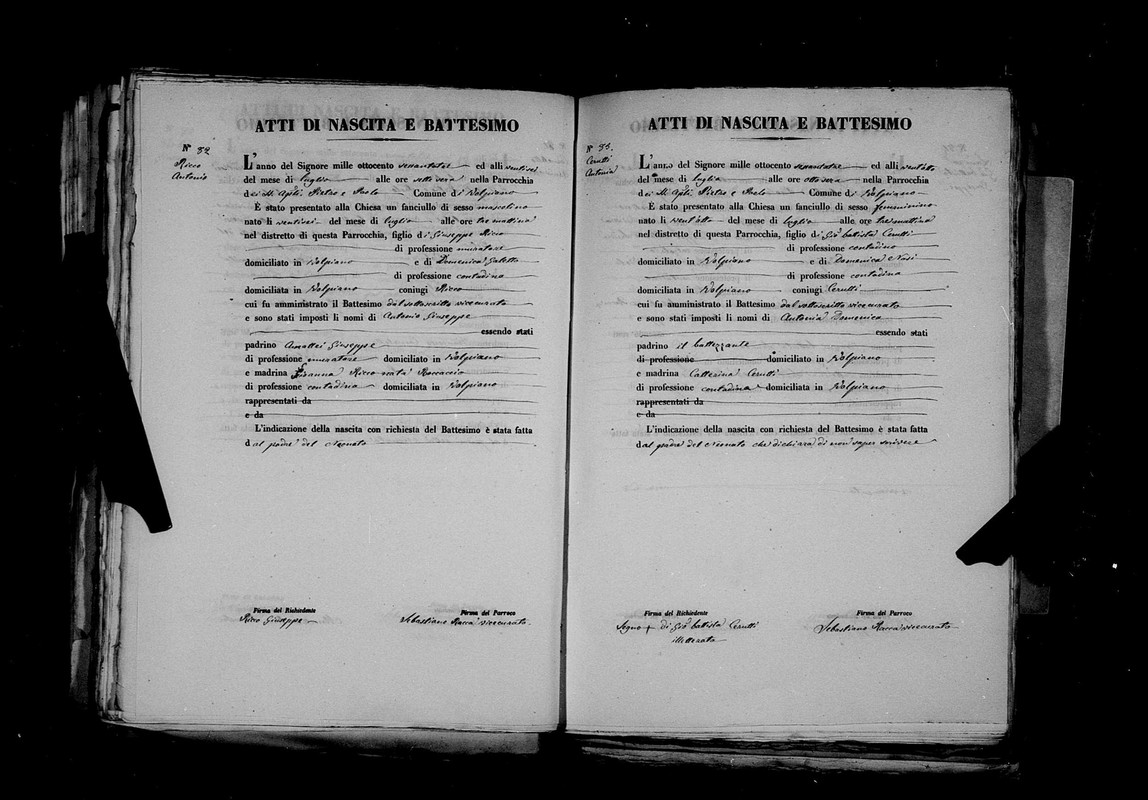 ATTI DI NASCITA E BATTESIMO
N° 32
Ricco
Antonio
L'anno del Signore mille ottocento sessantatre ed alli ventisei
del mese di luglio alle ore sette sera nella Parrocchia
dei SS. Apli. Pietro e Paolo Comune di Volpiano
È stato presentato alla Chiesa un fanciullo di sesso mascolino
nato li ventisei del mese di luglio alle ore tre mattina
nel distretto di questa Parrocchia, figlio di Giuseppe Ricco
di professione muratore
domiciliato in Volpiano e di Domenica Galetto
di professione contadina
domiciliata in Volpiano coniugi Ricco
cui fu amministrato il Battesimo dal sottoscritto vicecurato
e sono stati imposti li nomi di Antonio Giuseppe
essendo stati
padrino Amattei Giuseppe
di professione muratore domiciliato in Volpiano
e madrina Ricco nata Boccaccio
di professione contadina domiciliata in Volpiano
rappresentati da
e da
L'indicazione della nascita con richiesta del Battesimo è stata fatta
dal padre del Neonato
Firma del Richiedente
Ricco Giuseppe
Firma del Parroco
Sebastiano Racca vicecurato
ATTI DI NASCITA E BATTESIMO
N° 33.
Cerutti
Antonia
L'anno del Signore mille ottocento sessantatre ed alli ventotto
del mese di luglio alle ore otto sera nella Parrocchia
dei SS. Apli. Pietro e Paolo Comune di Volpiano
È stato presentato alla Chiesa un fanciullo di sesso femminino
nato li vent'otto del mese di luglio alle ore tre mattina
nel distretto di questa Parrocchia, figlio di Gio batista Cerutti
di professione contadino
domiciliato in Volpiano e di Domenica Nasi
di professione contadina
domiciliata in Volpiano coniugi Cerutti
cui fu amministrato il Battesimo dal sottoscritto vicecurato
e sono stati imposti li nomi di Antonia Domenica
essendo stati
padrino il battezzante
di professione domiciliato in Volpiano
e madrina Catterina Cerutti
di professione contadina domiciliata in Volpiano
rappresentati da
e da
L'indicazione della nascita con richiesta del Battesimo è stata fatta
dal padre del Neonato che dichiara di non saper scrivere
Firma del Richiedente
Segno + di Gio batista Cerutti
illetterato
Firma del Parroco
Sebastiano Racca vicecurato